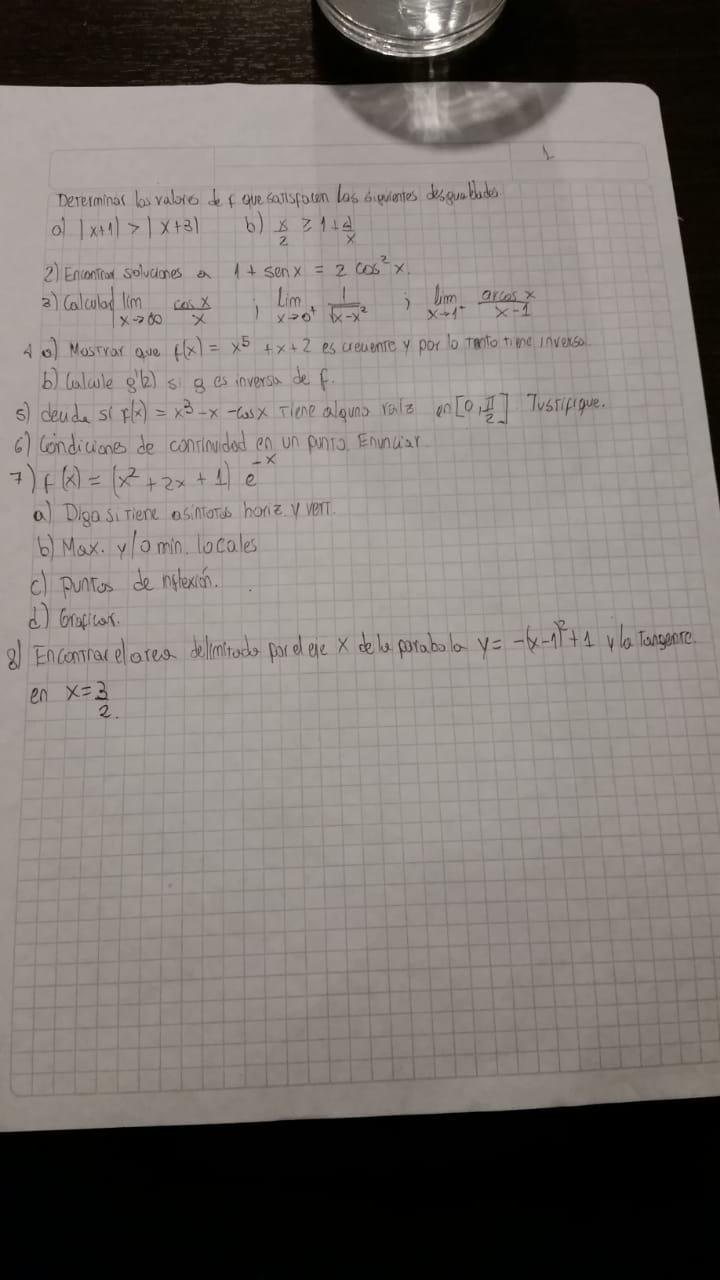 1
Determinar los valores de f que satisfacen las siguientes desigualdades.
a) |x+1| > |x+3| b) x/2 ≥ 1 + 4/x
2) Encontrar soluciones a 1 + sen x = 2 cos² x.
3) Calcular lim x→∞ cos x / x ; lim x→0⁺ 1/√(x-x²) ; lim x→1⁻ arcos x / x-1
4 a) Mostrar que f(x) = x⁵ + x + 2 es creciente y por lo tanto tiene inversa.
b) Calcule g'(2) si g es inversa de f.
5) decida si f(x) = x³ - x - cos x tiene alguna raíz en [0, π/2] Justifique.
6) Condiciones de continuidad en un punto. Enunciar
7) f(x) = (x² + 2x + 1) e^-x
a) Diga si tiene asintotas horiz. y vert.
b) Max. y/o min. locales
c) puntos de inflexión.
d) Graficar.
8) Encontrar el area delimitada por el eje X de la parabola y = -(x-1)² + 1 y la Tangente
en x = 3/2.